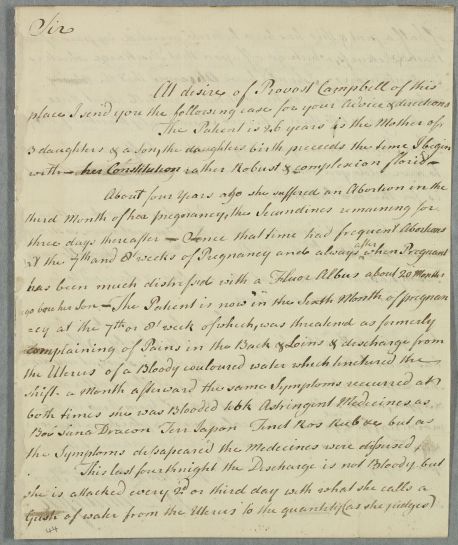 Sir
At desire of Provost Campbell of this
place I send you the following case for your Advice & directions
The Patient is 26 years is the Mother of
3 daughters & a Son, the daughters birth preceeds the time I begin
with — her Constitution rather Robust & complexion florid —
About four years ago she suffered an Abortion in the
third Month of her pregnancy, the Secundines remaining for
three days thereafter — Since that time had frequent Abortions
at the 7th and 8th weeks of Pregnancy and always after when Pregnant
has been much distressed with a Fluor Albus about 20 Months
ago bore her Son — The Patient is now in the Sixth Month of pregnan
cy at the 7th or 8th week of which, was threatend as formerly
complaining of Pains in the Back & Loins & discharge from
the Uterus of a Bloody couloured water which tinctured the
shift a Month afterward the same Symptoms recurred at
both times she was Blooded took Astringent Medicines as
Bol Sang Dracon Terr Japon Tinct Ros Rub &c but as
the Symptoms dissapeared the Medecines were disused,
This last fourthnight the Discharge is not Bloody but
she is attacked every 2d or third day with what she calls a
Gush of water from the Uterus to the quantity (as she judges)
44